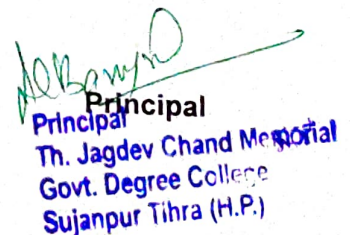 Principal
Principal
Th. Jagdev Chand Memorial
Govt. Degree College
Sujanpur Tihra (H.P.)